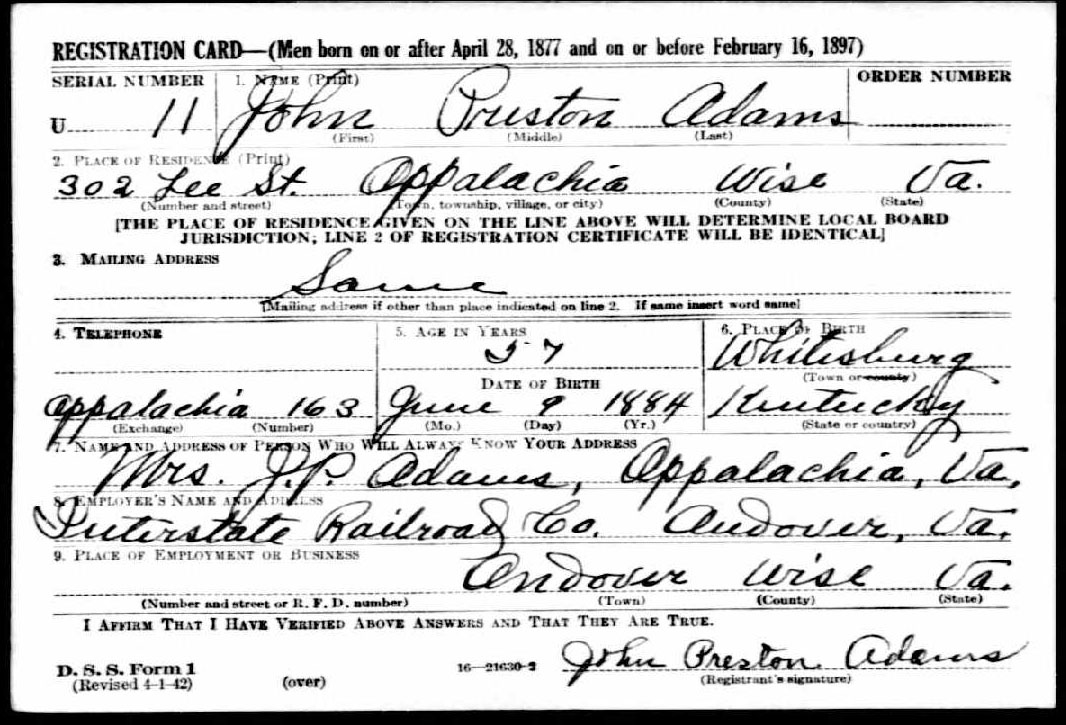 REGISTRATION CARD—(Men born on or after April 28, 1877 and on or before February 16, 1897)
SERIAL NUMBER 1. NAME (Print) ORDER NUMBER
U 11 John Preston Adams
(First) (Middle) (Last)
2. PLACE OF RESIDENCE (Print)
302 Lee St. Appalachia Wise Va.
(Number and street) (Town, township, village, or city) (County) (State)
[THE PLACE OF RESIDENCE GIVEN ON THE LINE ABOVE WILL DETERMINE LOCAL BOARD
JURISDICTION; LINE 2 OF REGISTRATION CERTIFICATE WILL BE IDENTICAL]
3. MAILING ADDRESS
Same
[Mailing address if other than place indicated on line 2. If same insert word same]
4. TELEPHONE 5. AGE IN YEARS 6. PLACE OF BIRTH
57 Whitesburg
DATE OF BIRTH (Town or county)
Appalachia 163 June 9 1884 Kentucky
(Exchange) (Number) (Mo.) (Day) (Yr.) (State or country)
7. NAME AND ADDRESS OF PERSON WHO WILL ALWAYS KNOW YOUR ADDRESS
Mrs. J.P. Adams, Appalachia, Va.
8. EMPLOYER'S NAME AND ADDRESS
Interstate Railroad Co. Andover, Va.
9. PLACE OF EMPLOYMENT OR BUSINESS
Andover Wise Va.
(Number and street or R. F. D. number) (Town) (County) (State)
I AFFIRM THAT I HAVE VERIFIED ABOVE ANSWERS AND THAT THEY ARE TRUE.
D. S. S. Form 1 16—21630-2 John Preston Adams
(Revised 4-1-42) (over) (Registrant's signature)